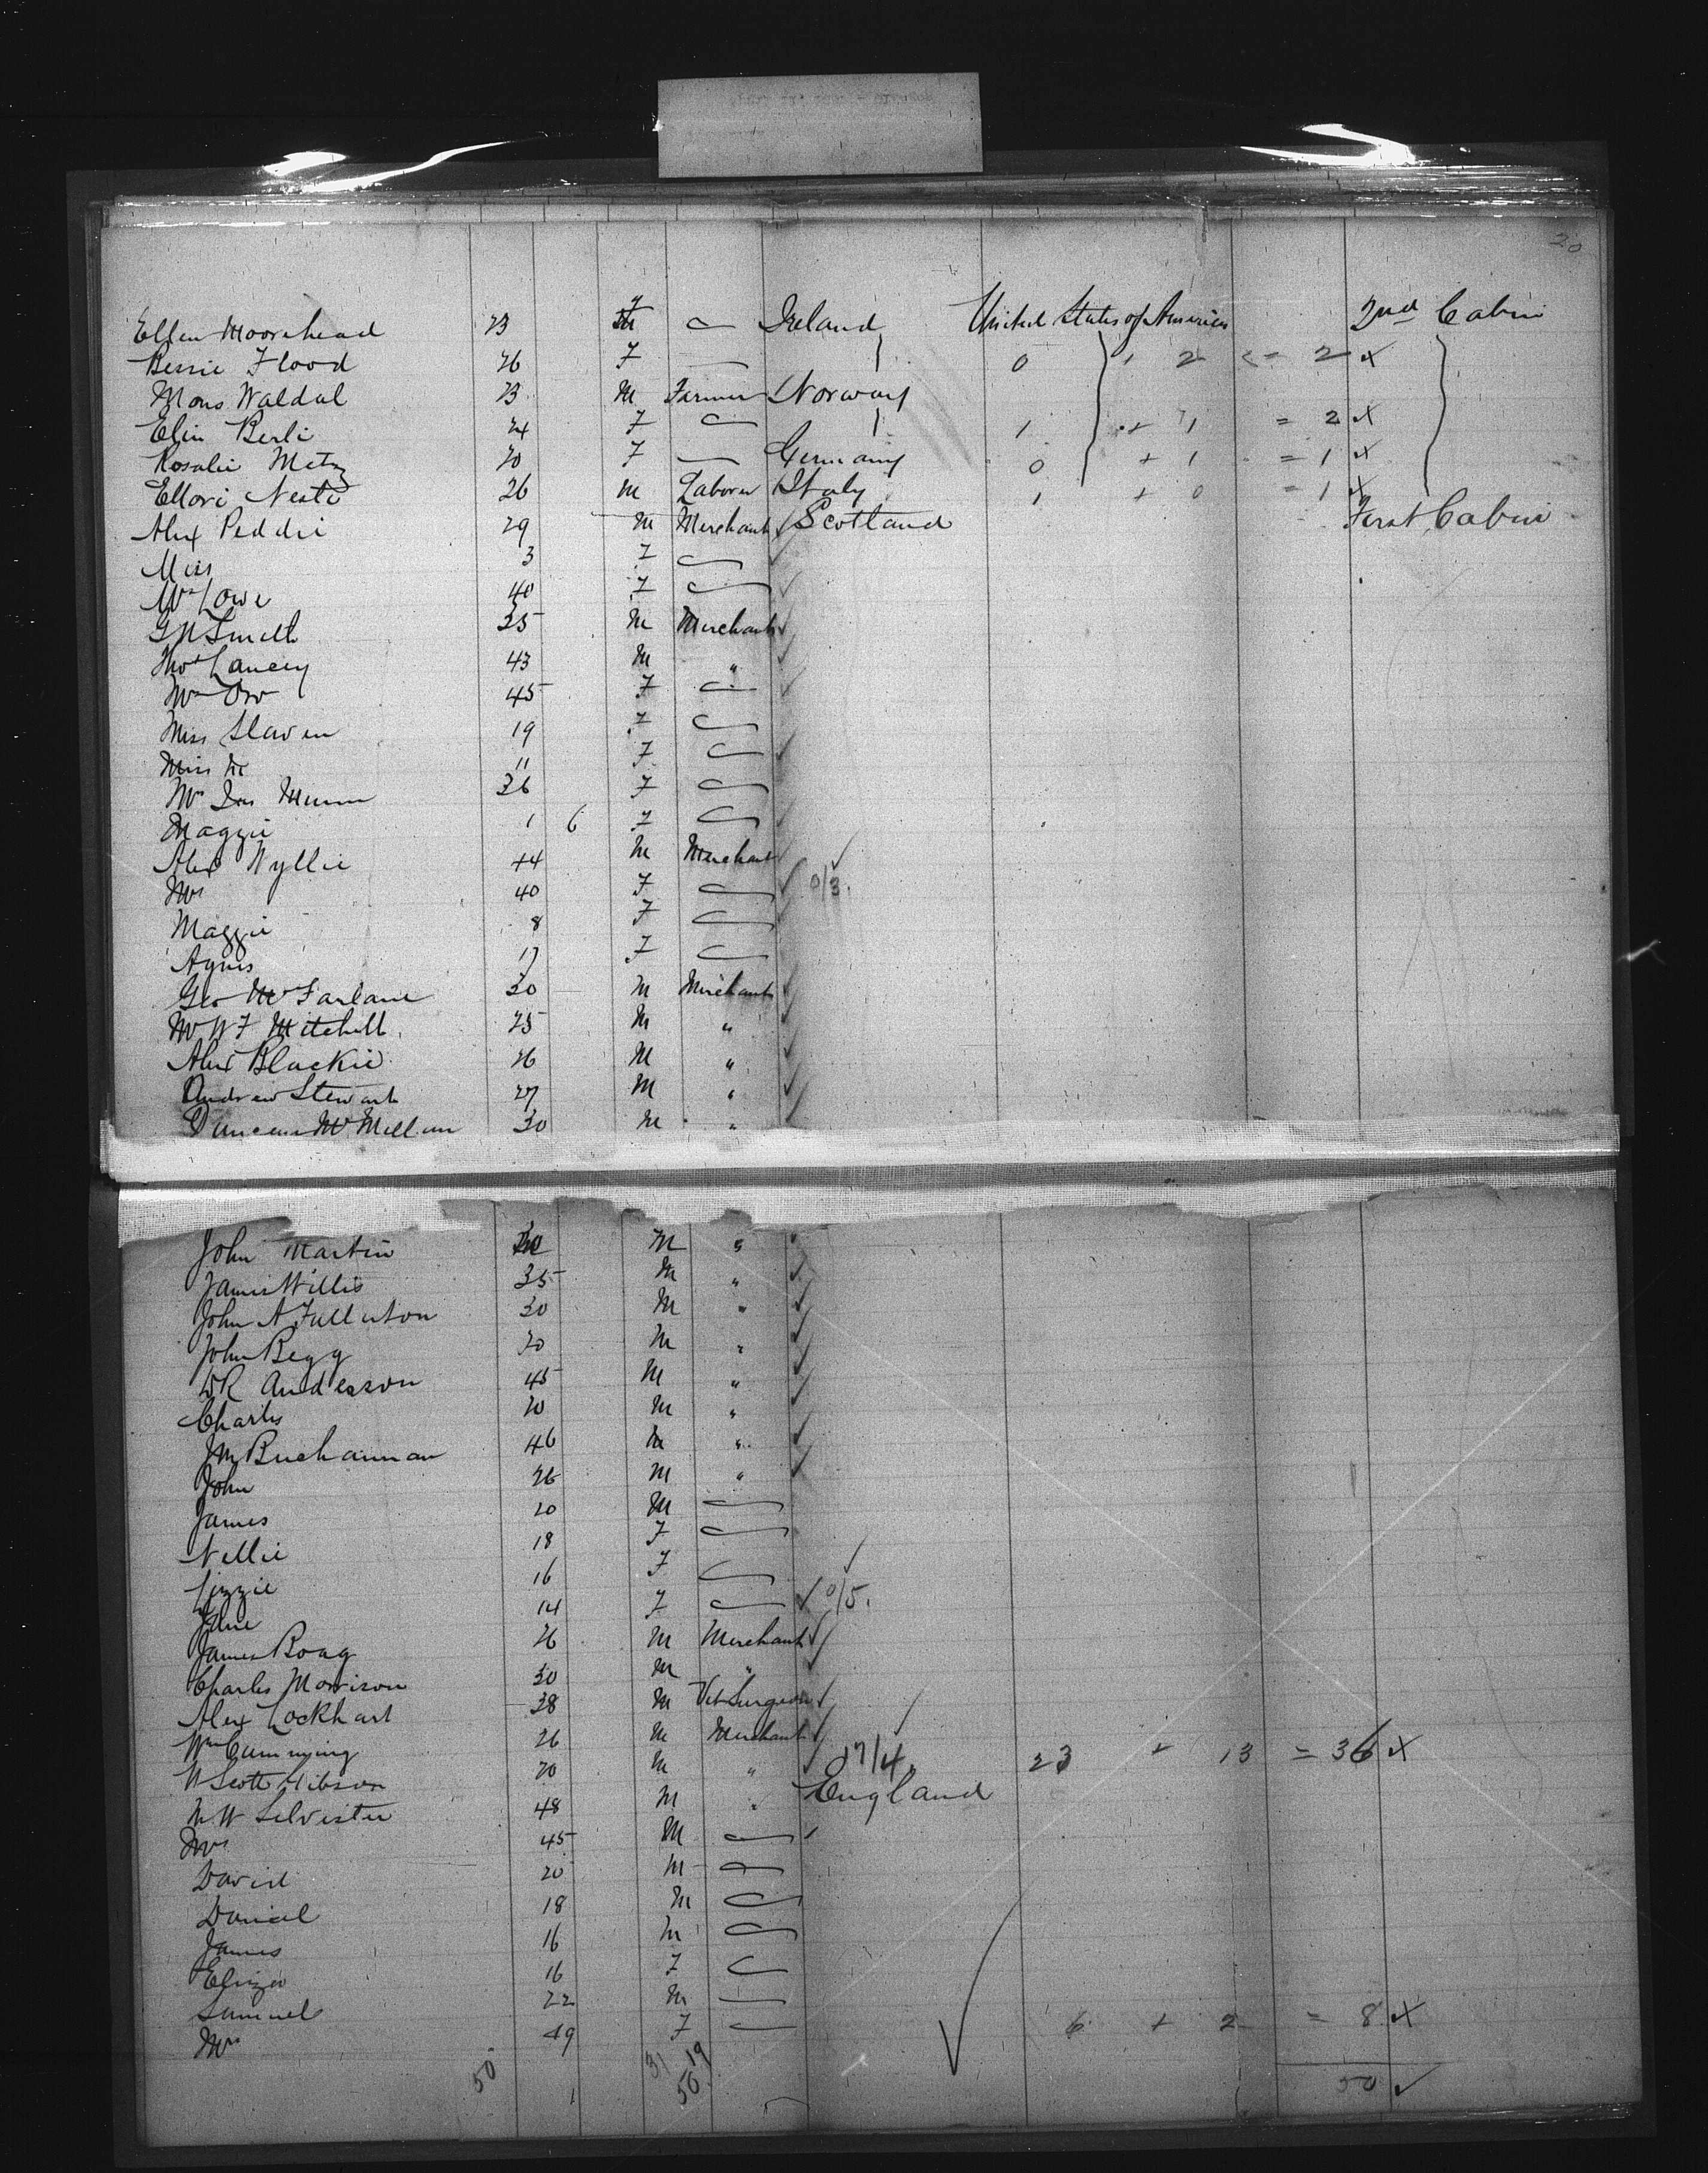 20
Ellen Moorehead 23 F — Ireland United States of America 2nd Cabin
Bessie Flood 26 F — 0 + 2 = 2 x
Mons Waldal 23 M Farmer Norway
Elin Berli 24 F — 1 + 1 = 2 x
Rosalie Metz 20 F — Germany 0 + 1 = 1 x
Ellori Nesti 26 M Laborer Italy 1 + 0 = 1 x
Alex Peddie 29 M Merchant Scotland First Cabin
Miss 3 F —
Mrs Lowe 40 F —
G N Smith 35 M Merchant
Thos Lancey 43 M "
Mrs Orr 45 F —
Miss Slaven 19 F —
Miss 11 F —
Mrs Munn 36 F —
Maggie 1 6 F —
Alex Wyllie 44 M Merchant
Mrs 40 F — 0/3.
Maggie 8 F —
Agnes 17 F —
Geo McFarlane 30 M Merchant
Mr W F Mitchell 25 M "
Alex Blackie 26 M "
Andrew Stewart 27 M "
Duncan McMillan 30 M "
John Martin 30 M "
James Willis 35 M "
John A Fullerton 30 M "
John Begg 30 M "
W R Anderson 45 M "
Charles 20 M "
J M Buchannan 46 M "
John 26 M "
James 20 M —
Nellie 18 F —
Lizzie 16 F —
Jane 14 F — 0/5.
James Boag 26 M Merchant
Charles Morrison 30 M "
Alex Lockhart 38 M Vet Surgeon
Wm Cumming 26 M Merchant
W Scott Gibson 20 M " 17/4. 23 + 13 = 36 x
M W Silvester 48 M " England
Mrs 45 M —
David 20 M —
Danial 18 M —
James 16 M —
Eliza 16 F —
Samuel 22 M —
Mrs 49 F — 6 + 2 = 8 x
50 31 19 50 50